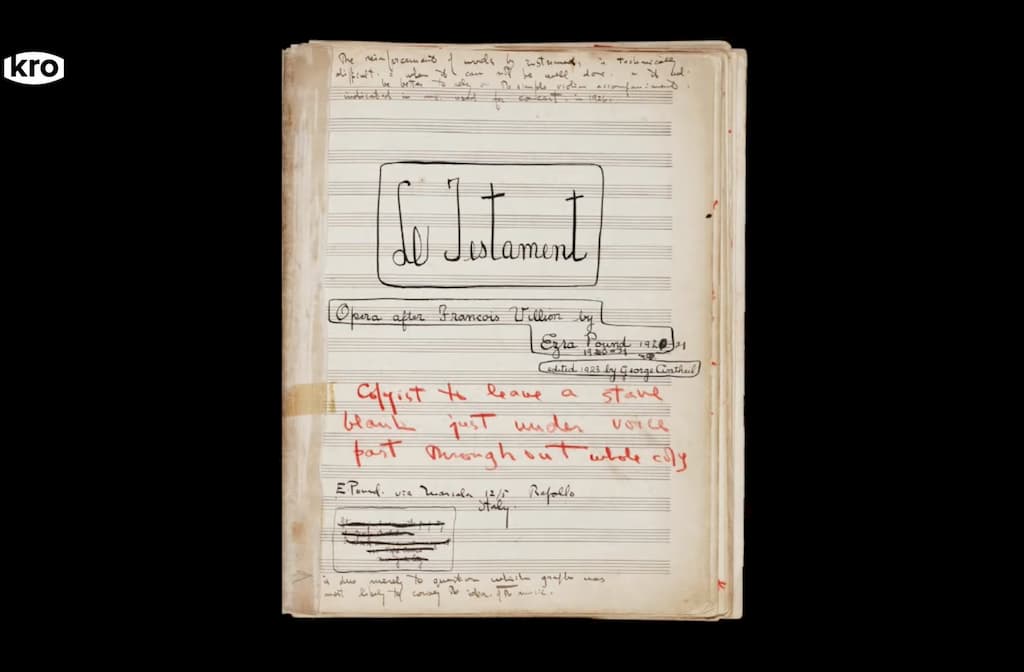 kro
The reinforcement of words by instruments is technically
difficult. & when it can not be well done. it
be better to rely on the simple violin accompaniment
indicated in used for concert. in 1926.
Le Testament
Opera after Francois Villion by
Ezra Pound 1920-21
1920-21
edited 1923 by George Antheil
Copyist to leave a stave
blank just under voice
part throughout whole copy
E. Pound. via Marsala 12/5 Rapallo
Italy.
is due merely to question which graph was
most likely to convey the idea of the music.